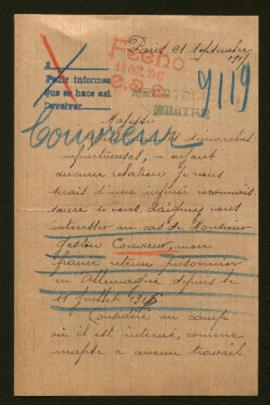 Paris 21 septembre
1917
Fecho
13 OCT. 1917
e.s.e.
A
Pedir informes
que se hace así
Devolver
9119
Couvreur
Majesté
démarches
infructueuses, n'ayant
aucune relation je vous
serais d'une infinie reconnais-
sance si vous daigniez vous
intéresser au cas de Monsieur
Gaston Couvreur, mon
fiancé retenu prisonnier
en Allemagne depuis le
11 juillet 191
Considéré au camp
où il est interné, comme
inapte à aucun travail